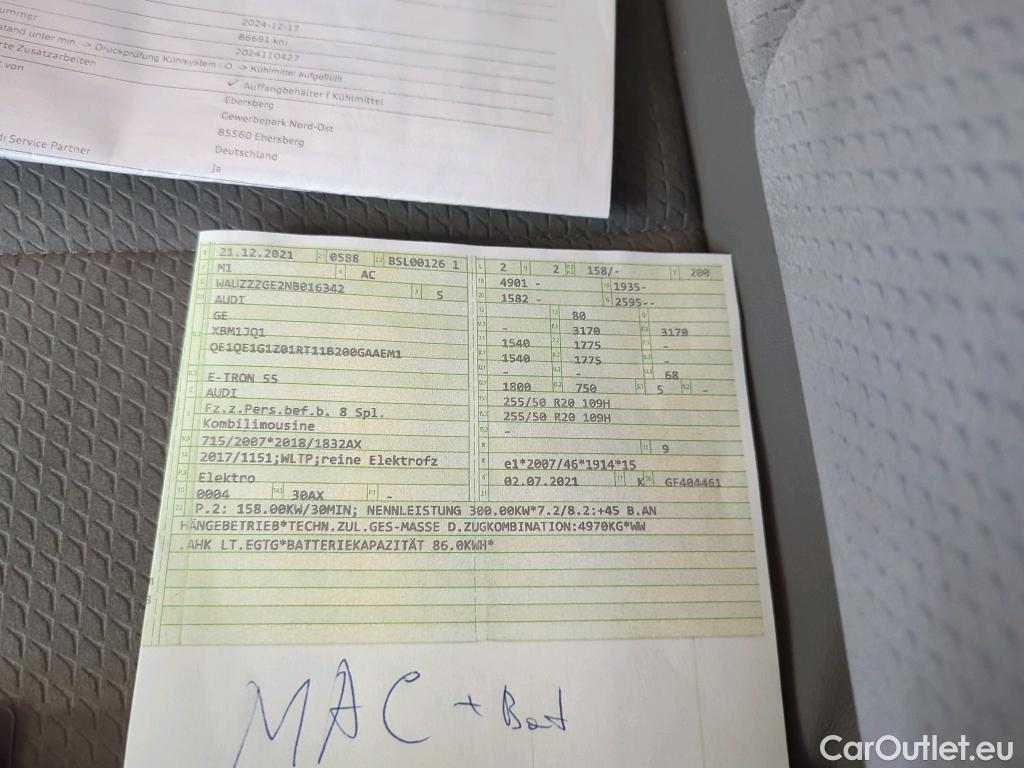 ummer 2024-12-17
86691 km
stand unter min. -> Druckprüfung Kühlsystem i.O. -> Kühlmittel aufgefüllt 2024110427
rte Zusatzarbeiten ✓ Auffangbehälter ( Kühlmittel
t von Ebersberg
Gewerbepark Nord-Ost
85560 Ebersberg
Deutschland
di Service Partner Ja
21.12.2021 0588 BSL00126 1 2 2 158/- 200
M1 AC 4901 - 1935-
WAUZZZGE2NB016342 5 1582 - 2595--
AUDI 80
GE - 3170 3170
XBM1JQ1 1540 1775 -
QE1QE1G1Z01RT11B200GAAEM1 1540 1775 -
- - 68
E-TRON 55 1800 750 5 -
AUDI 255/50 R20 109H
Fz.z.Pers.bef.b. 8 Spl. 255/50 R20 109H
Kombilimousine -
715/2007*2018/1832AX 9
2017/1151;WLTP;reine Elektrofz e1*2007/46*1914*15
Elektro 02.07.2021 K GF404461
0004 30AX -
P.2: 158.00KW/30MIN; NENNLEISTUNG 300.00KW*7.2/8.2:+45 B.AN
HÄNGEBETRIEB*TECHN.ZUL.GES-MASSE D.ZUGKOMBINATION:4970KG*WW
.AHK LT.EGTG*BATTERIEKAPAZITÄT 86.0KWH*
MAC + Bat
CarOutlet.eu